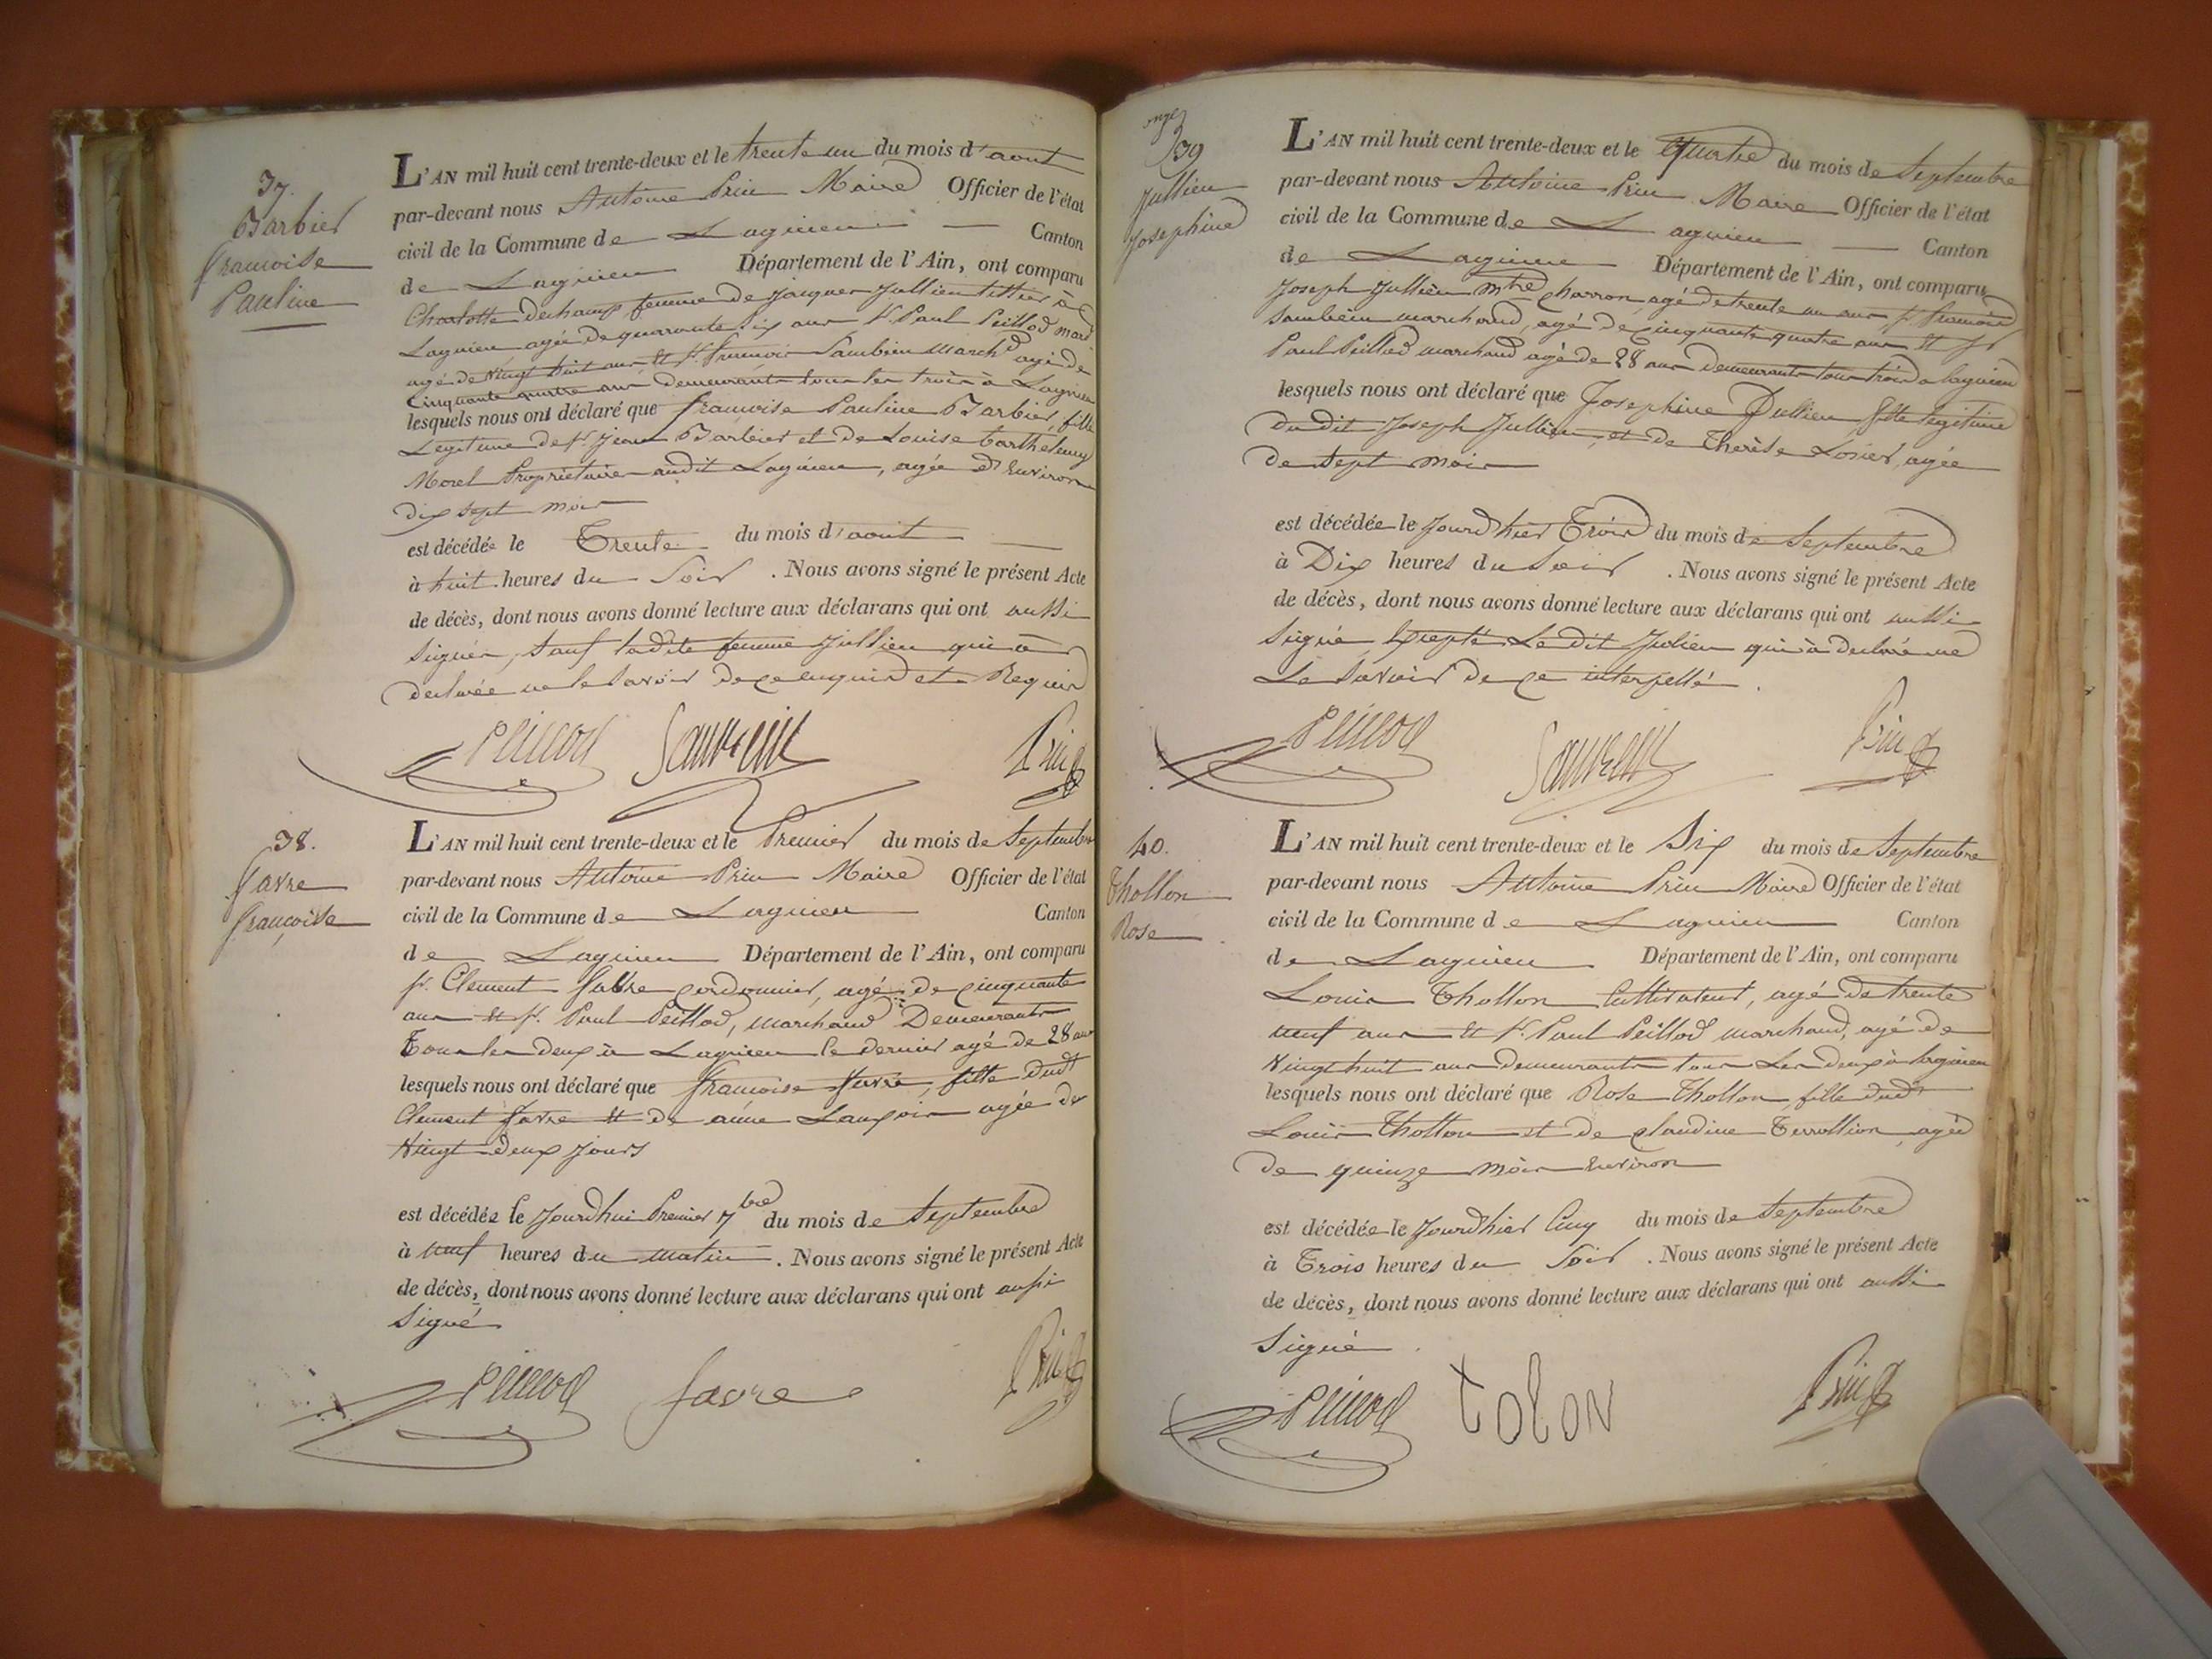 37.
Barbier
françoise
Pauline
L'AN mil huit cent trente-deux et le trente un du mois d'aout
par-devant nous Antoine Prin Maire Officier de l'état
civil de la Commune de Lagnieu Canton
de Lagnieu Département de l'Ain, ont comparu
Charlotte Dechamp femme de Jacques Jullien tittier à
Lagnieu agée de quarante six ans Sr. Paul Peillod mard
agé de vingt huit ans et Sr. françois Sambein Marchd agé de
Cinquante quatre ans Demeurants tous les trois à Lagnieu
lesquels nous ont déclaré que françoise Pauline Barbier, fille
Légitime de Sr. Jean Barbier et de Louise barthelemy
Morel Propriétaires audit Lagnieu, agée d'Environ
dix sept mois
est décédée le Trente du mois d'aout
à huit heures du Soir . Nous avons signé le présent Acte
de décès, dont nous avons donné lecture aux déclarans qui ont aussi
signés, sauf ladite femme Jullien qui à
declarée ne le Savoir de ce enquis et Requis
Peillod Sambein Prin
38.
favre
françoise
L'AN mil huit cent trente-deux et le Premier du mois de Septembre
par-devant nous Antoine Prin Maire Officier de l'état
civil de la Commune de Lagnieu Canton
de Lagnieu Département de l'Ain, ont comparu
sr. Clement favre cordonnier, agé de cinquante
ans et sr. Paul Peillod, marchand Demeurants
Tous les deux à Lagnieu le dernier agé de 28 ans
lesquels nous ont déclaré que françoise favre, fille dudt
Clement favre et de aime agée de
vingt deux jours
est décédée le jourdhui Premier 7bre du mois de Septembre
à neuf heures du matin . Nous avons signé le présent Acte
de décès, dont nous avons donné lecture aux déclarans qui ont aussi
Signé
Peillod favre Prin
39
Jullien
Josephine
L'AN mil huit cent trente-deux et le Quatre du mois de Septembre
par-devant nous Antoine Prin Maire Officier de l'état
civil de la Commune de Lagnieu Canton
de Lagnieu Département de l'Ain, ont comparu
Joseph Jullien mtre charron, agé de trente un ans sr françois
Sambein marchand, agé de cinquante quatre ans et sr
Paul Peillod marchand agé de 28 ans demeurants tous trois a lagnieu
lesquels nous ont déclaré que Josephine Jullien fille légitime
dudit Joseph Jullien, et de Therèse Losier, agée
de sept mois
est décédée le jourd'hier Trois du mois de Septembre
à Dix heures du Soir . Nous avons signé le présent Acte
de décès, dont nous avons donné lecture aux déclarans qui ont aussi
signé, Excepté Le dit Julien qui à declaré ne
Le Savoir de ce interpellé.
Peillod Sambein Prin
40.
Thollon
Rose
L'AN mil huit cent trente-deux et le Six du mois de Septembre
par-devant nous Antoine Prin Maire Officier de l'état
civil de la Commune de Lagnieu Canton
de Lagnieu Département de l'Ain, ont comparu
Louis Thollon Cultivateur, agé de trente
neuf ans et sr. Paul Peillod marchand, agé de
vingt huit ans demeurants tous Les deux à lagnieu
lesquels nous ont déclaré que Rose Thollon, fille dudt
Louis Thollon et de claudine Terrollion, agée
de quinze mois Environ
est décédée le jourd'hier Cinq du mois de Septembre
à Trois heures du Soir . Nous avons signé le présent Acte
de décès, dont nous avons donné lecture aux déclarans qui ont aussi
signé.
Peillod tolon Prin